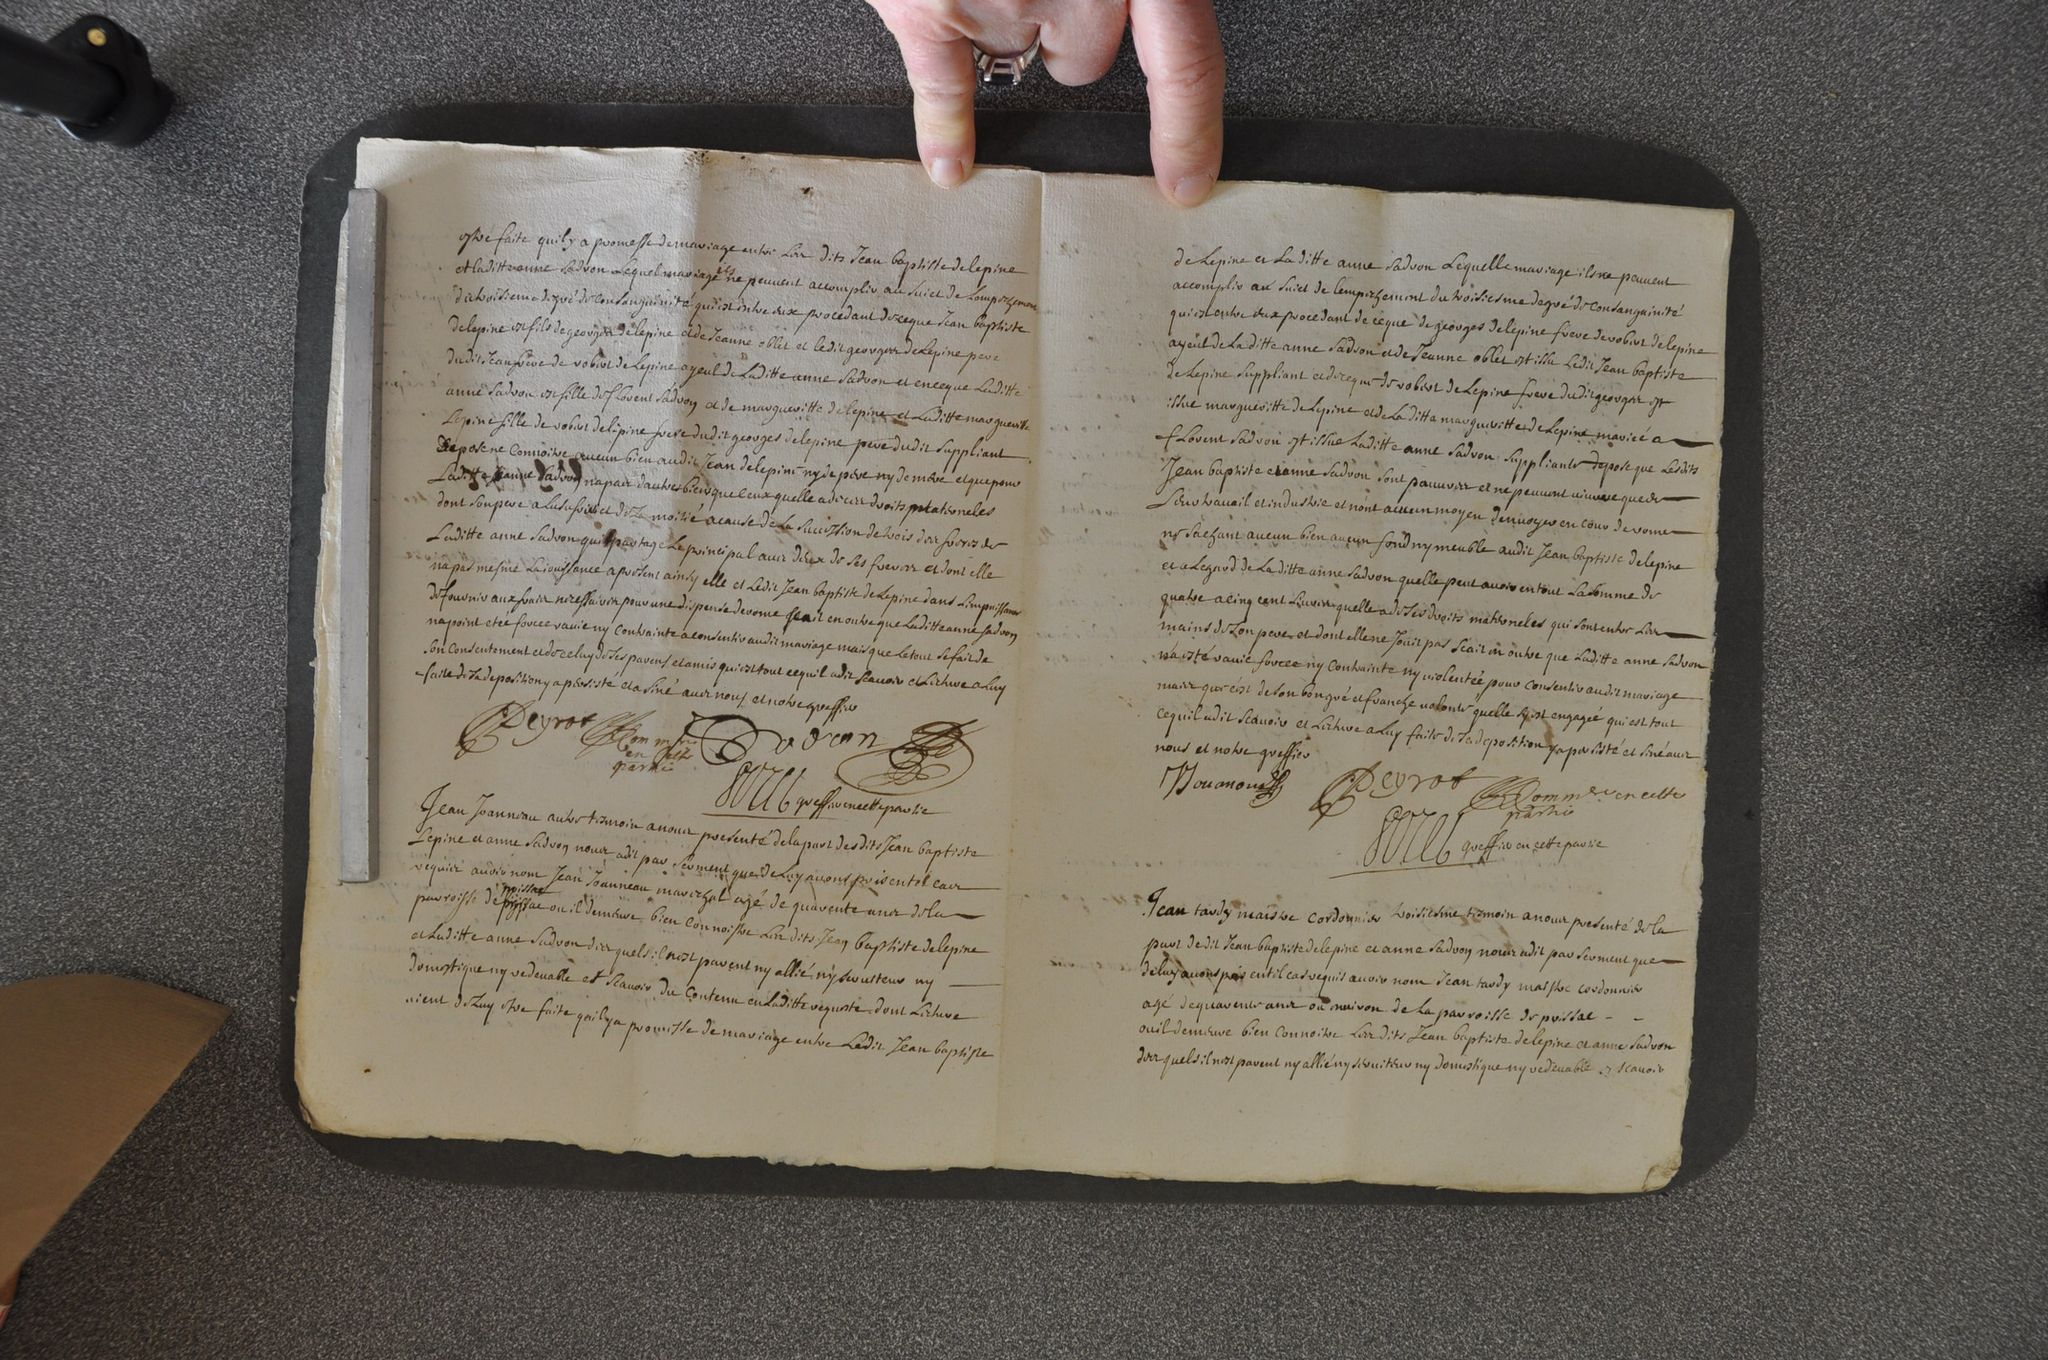 estre faite quil y a promesse de mariage entre les dits Jean baptiste delepine
et laditte anne Sadron Lequel mariage ils ne peuvent accomplir au suiet de Lempeschement
du troisieme degré de consanguinité qui est entre eux procedant de ceque Jean baptiste
delepine est fils de georges delepine et de Jeanne oblet et ledit georges de Lepine pere
dudit Jean frere de robert de Lepine ayeul de Laditte anne Sadron et en ceque Laditte
anne Sadron est fille de florent Sadron et de margueritte delepine et Laditte margueritte
Lepine fille de robert delepine frere dudit georges delepine pere dudit Suppliant
Depose ne Connoitre aucun bien audit Jean delepine ny de pere ny de mere et que pour
Laditte anne Sadron na pas dautres biens que ceux quelle a de ses droits maternels
dont son pere a la et de la moitié a cause de la Succession de trois des freres de
Laditte anne Sadron quil partage Le principal avec deux de ses freres et dont elle
na pas mesme La iouissance a present ainsy elle et Ledit Jean baptiste de Lepine dans Limpuissance
de fournir aux frais necessaires pour une dispense de rome Scait en outre que Laditte anne Sadron
na point eté forcée ravie ny Contrainte a consentir audit mariage mais que Letout se fait de
son Consentement et de celuy de ses parens et amis qui est tout ce quil a dit Scavoir et Lecture a Luy
faite de Sa deposition y a persisté et a siné avec nous et notre greffier
Peyrot Comm.re Sadron
en cette
partie
greffier en cette partie
Jean Joanneau autre temoin a nous presenté de la part des dits Jean baptiste
Lepine et anne Sadron nous a dit par Serment que de Luy avons pris en tel cas
requis avoir nom Jean Joanneau mareschal agé de quarente ans de la
parroisse de poissac ou il demeure bien Connoistre Les dits Jean baptiste delepine
et Laditte anne Sadron des quels il nest parent ny allié ny serviteur ny
domestique ny redevable et Scavoir du Contenu en Laditte requeste dont Lecture
vient de Luy estre faite quil y a promesse de mariage entre Ledit Jean baptiste
de Lepine et La ditte anne Sadron Lequelle mariage ils ne peuvent
accomplir au Suiet de lempeschement du troisiesme degré de Consanguinité
qui est entre eux procedant de ceque de georges delepine frere de robert de lepine
ayeul de La ditte anne Sadron et de Jeanne oblet est issu Ledit Jean baptiste
de Lepine Suppliant et de ceque de robert de Lepine frere dudit georges est
issue margueritte de Lepine et de La ditte margueritte de Lepine mariée a
florent Sadron est issue Laditte anne Sadron Suppliante depose que Lesdits
Jean baptiste et anne Sadron sont pauvres et ne peuvent vivre que de
Leur travail et industrie et nont aucun moyen denvoyer en Cour de rome
ne Sachant aucun bien aucun fond ny meuble audit Jean baptiste delepine
et a Legard de La ditte anne Sadron quelle peut avoir en tout La Somme de
quatre a cinq cent Livres quelle a de ses droits maternels qui sont entre Les
mains de Son pere et dont elle ne Jouit pas Scait en outre que Laditte anne Sadron
na esté ravie forcée ny Contrainte ny violentée pour consentir audit mariage
mais que cest de son bon gré et franche volonté quelle Sy est engagée qui est tout
ce quil a dit Scavoir et Lecture a Luy faite de Sa deposition y a persisté et siné avec
nous et notre greffier
Peyrot Comm.re en cette
partie
greffier en cette partie
Jean tardy maistre Cordonnier troisiesme temoin a nous presenté de la
part de dit Jean baptiste de lepine et anne Sadron nous a dit par Serment que
de luy avons pris en til cas requis avoir nom Jean tardy maistre cordonnier
agé de quarente ans ou environ de La parroisse de poissac
ou il demeure bien Connoitre Les dits Jean baptiste de lepine et anne Sadron
des quels il nest parent ny allié ny serviteur ny domestique ny redevable Scavoir